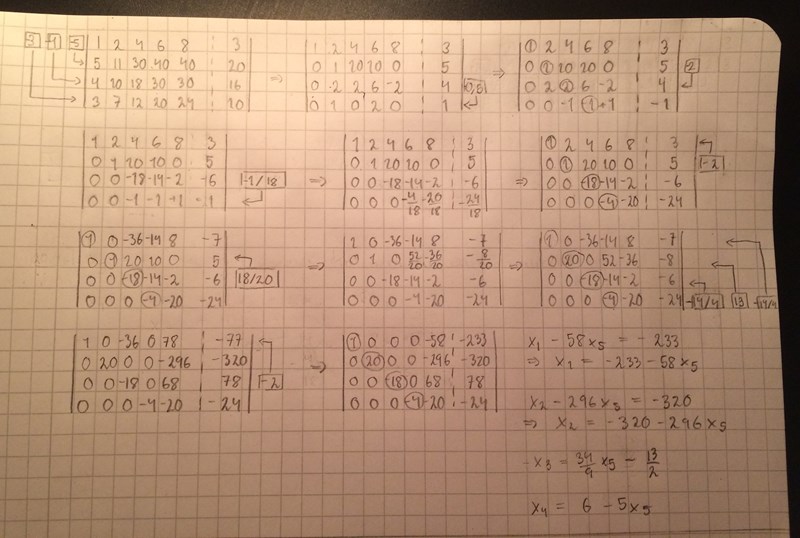 3 -4 -5 | 1 2 4 6 8 ¦ 3 |
| 5 11 30 40 40 ¦ 20 |
| 4 10 18 30 30 ¦ 16 |
| 3 7 12 20 24 ¦ 10 |
⇒ | 1 2 4 6 8 ¦ 3 |
| 0 1 10 10 0 ¦ 5 |
| 0 2 2 6 -2 ¦ 4 | 0,5
| 0 1 0 2 0 ¦ 1 |
⇒ | 1 2 4 6 8 ¦ 3 |
| 0 1 10 10 0 ¦ 5 | 2
| 0 2 2 6 -2 ¦ 4 |
| 0 0 -1 -1 +1 ¦ -1 |
| 1 2 4 6 8 ¦ 3 |
| 0 1 10 10 0 ¦ 5 |
| 0 0 -18 -14 -2 -6 | -1/18
| 0 0 -1 -1 +1 -1 |
⇒ | 1 2 4 6 8 ¦ 3 |
| 0 1 20 10 0 ¦ 5 |
| 0 0 -18 -14 -2 ¦ -6 |
| 0 0 0 -4/18 -20/18 ¦ -24/18 |
⇒ | 1 2 4 6 8 ¦ 3 |
| 0 1 20 10 0 ¦ 5 | -2
| 0 0 -18 -14 -2 ¦ -6 |
| 0 0 0 -4 -20 ¦ -24 |
| 1 0 -36 -14 8 -7 |
| 0 1 20 10 0 5 |
| 0 0 -18 -14 -2 -6 | 18/20
| 0 0 0 -4 -20 -24 |
⇒ | 1 0 -36 -14 8 -7 |
| 0 1 0 52/20 -36/20 -8/20 |
| 0 0 -18 -14 -2 -6 |
| 0 0 0 -4 -20 -24 |
⇒ | 1 0 -36 -14 8 ¦ -7 |
| 0 20 0 52 -36 ¦ -8 |
| 0 0 -18 -14 -2 ¦ -6 |
| 0 0 0 -4 -20 ¦ -24 | -14/4 13 -14/4
| 1 0 -36 0 78 ¦ -77 |
| 0 20 0 0 -296 ¦ -320 |
| 0 0 -18 0 68 ¦ 78 | -2
| 0 0 0 -4 -20 ¦ -24 |
⇒ | 1 0 0 0 -58 ¦ -233 |
| 0 20 0 0 -296 ¦ -320 |
| 0 0 -18 0 68 ¦ 78 |
| 0 0 0 -4 -20 ¦ -24 |
x1 - 58x5 = -233
⇒ x1 = -233 - 58x5
x2 - 296x5 = -320
⇒ x2 = -320 - 296x5
-x3 = 34/9 x5 - 13/2
x4 = 6 - 5x5